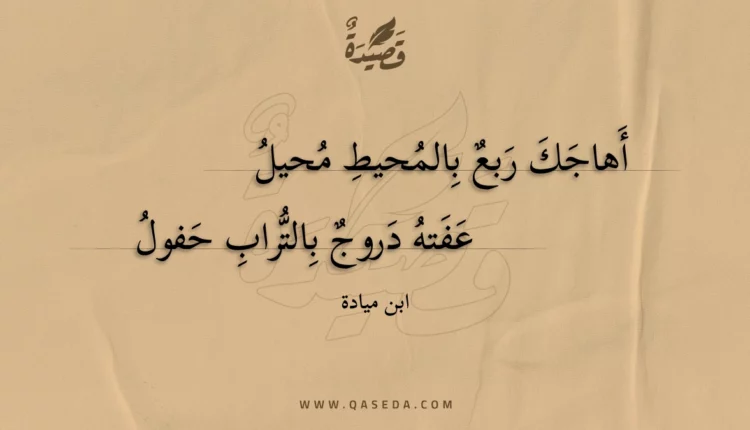 قَصِيدَةٌ
أَهاجَكَ رَبعٌ بِالمُحيطِ مُحيلُ
عَفَتهُ دَروجٌ بِالتُّرابِ حَفولُ
ابن ميادة
WWW.QASEDA.COM